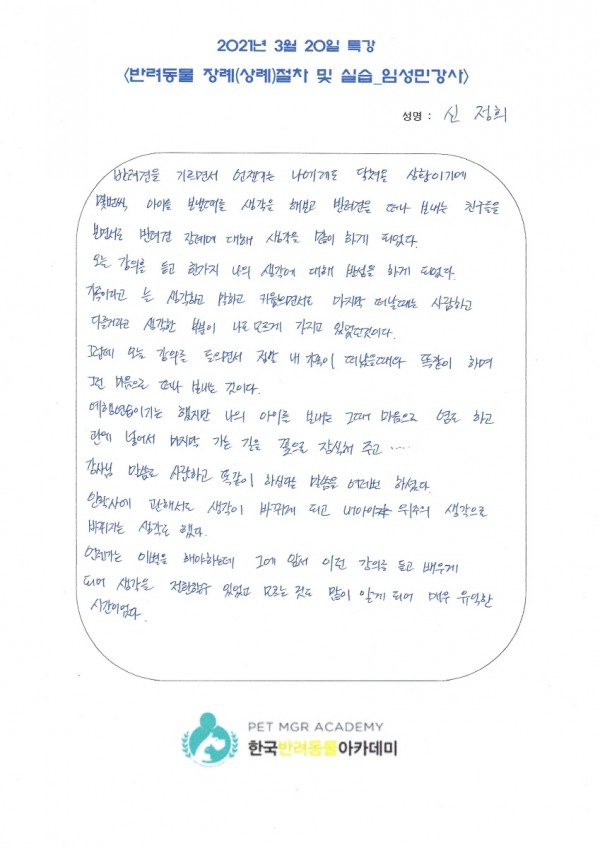 2021년 3월 20일 특강
<반려동물 장례(상례)절차 및 실습_임성민강사>
성명 : 신 정희
반려견을 기르면서 언젠가는 나에게도 닥쳐올 상황이기에
몇번씩 아이를 보낼때를 생각을 해보고 반려견을 떠나 보내는 친구들을
보면서도 반려견 장례에 대해 생각을 많이 하게 되었다.
오늘 강의를 듣고 한가지 나의 생각에 대해 반성을 하게 되었다.
가족이라고 는 생각하고 말하고 키웠으면서도 마지막 떠날때는 사람하고
다른거라고 생각한 부분이 나도 모르게 가지고 있었던것이다.
그런데 오늘 강의를 들으면서 정말 내 가족이 떠났을때와 똑같이 하며
그런 마음으로 떠나 보내는 것이다.
예행연습이기는 했지만 나의 아이를 보내는 그때 마음으로 염도 하고
관에 넣어서 마지막 가는 길을 꽃으로 장식해 주고 .....
강사님 말씀도 사람하고 똑같이 하십다는 말씀을 여러번 하셨다.
안락사에 관해서도 생각이 바뀌게 되고 내아이 위주의 생각으로
바뀌기는 생각도 했다.
언젠가는 이별을 해야하는데 그에 앞서 이런 강의를 듣고 배우게
되어 생각을 전환할수 있었고 모르는 것도 많이 알게 되어 매우 유익한
시간이었다.
PET MGR ACADEMY
한국반려동물아카데미